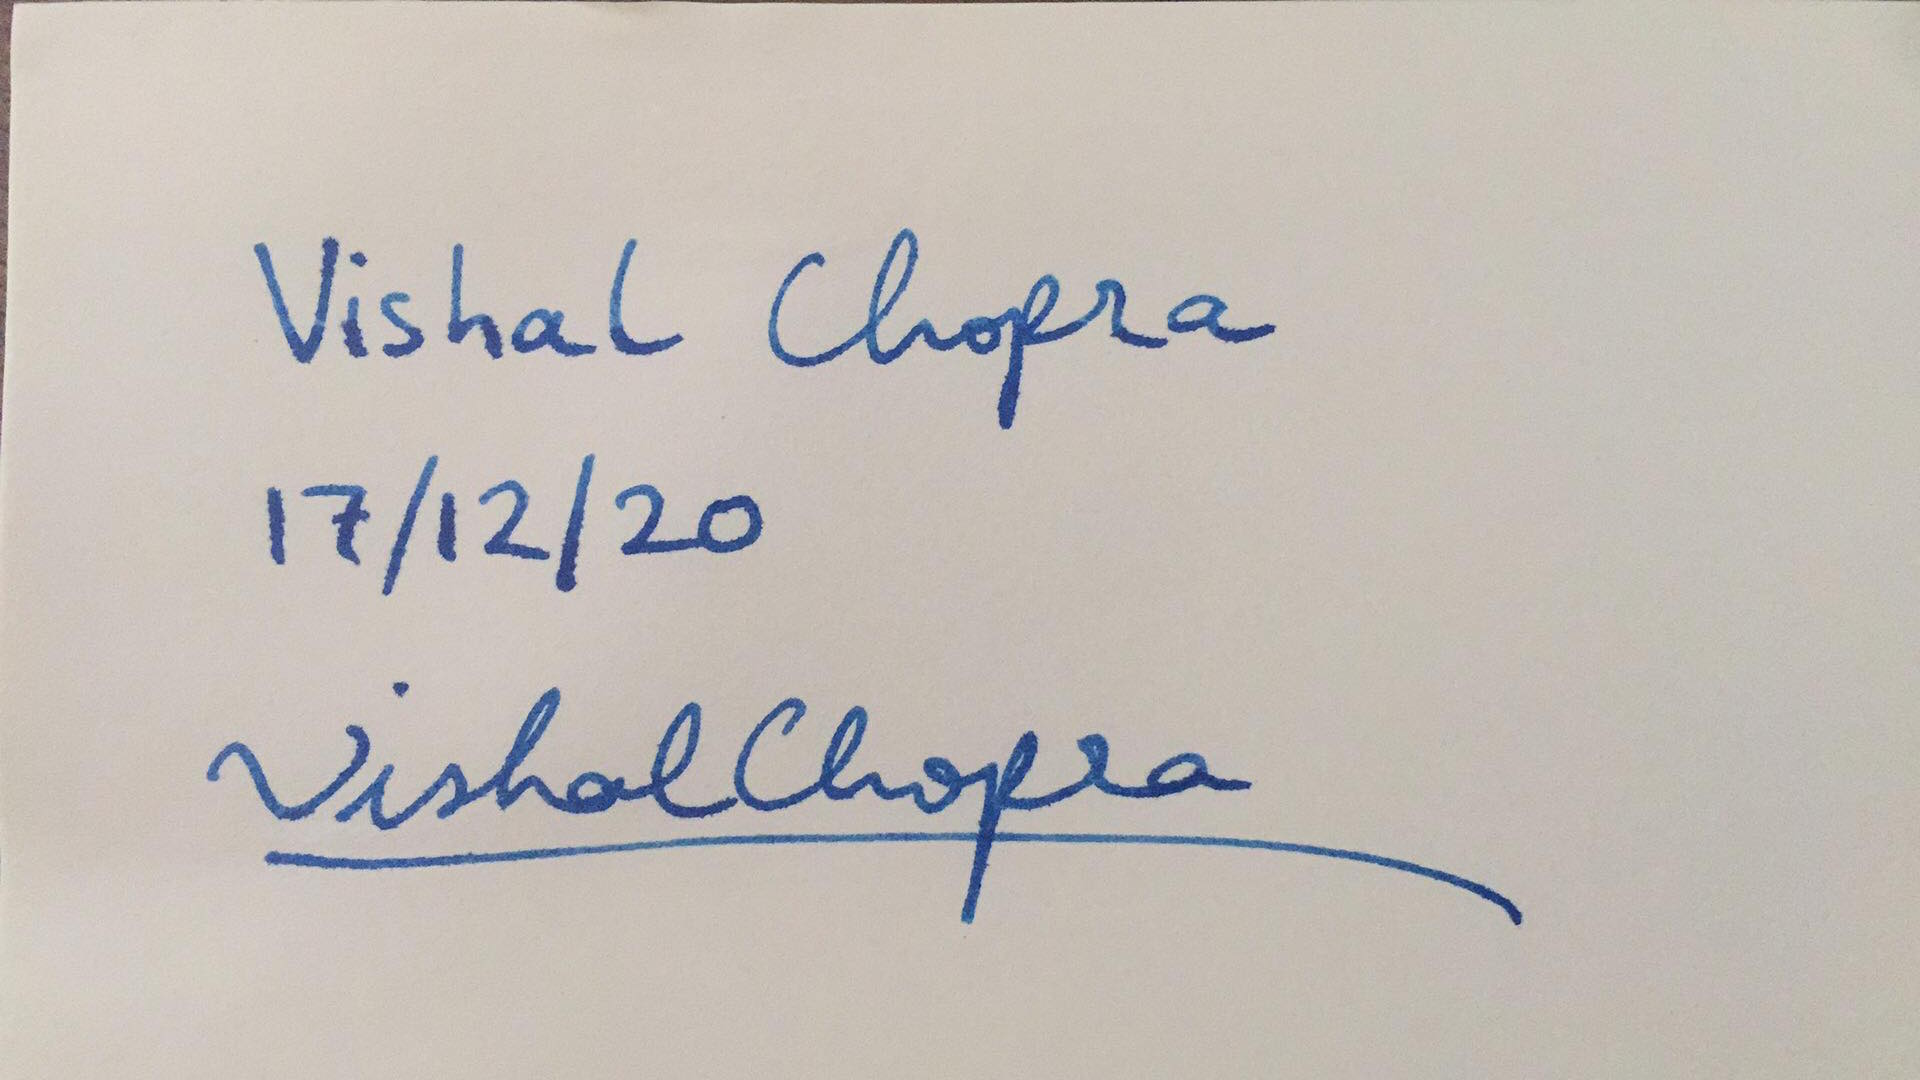 Vishal Chopra
17/12/20
Vishal Chopra